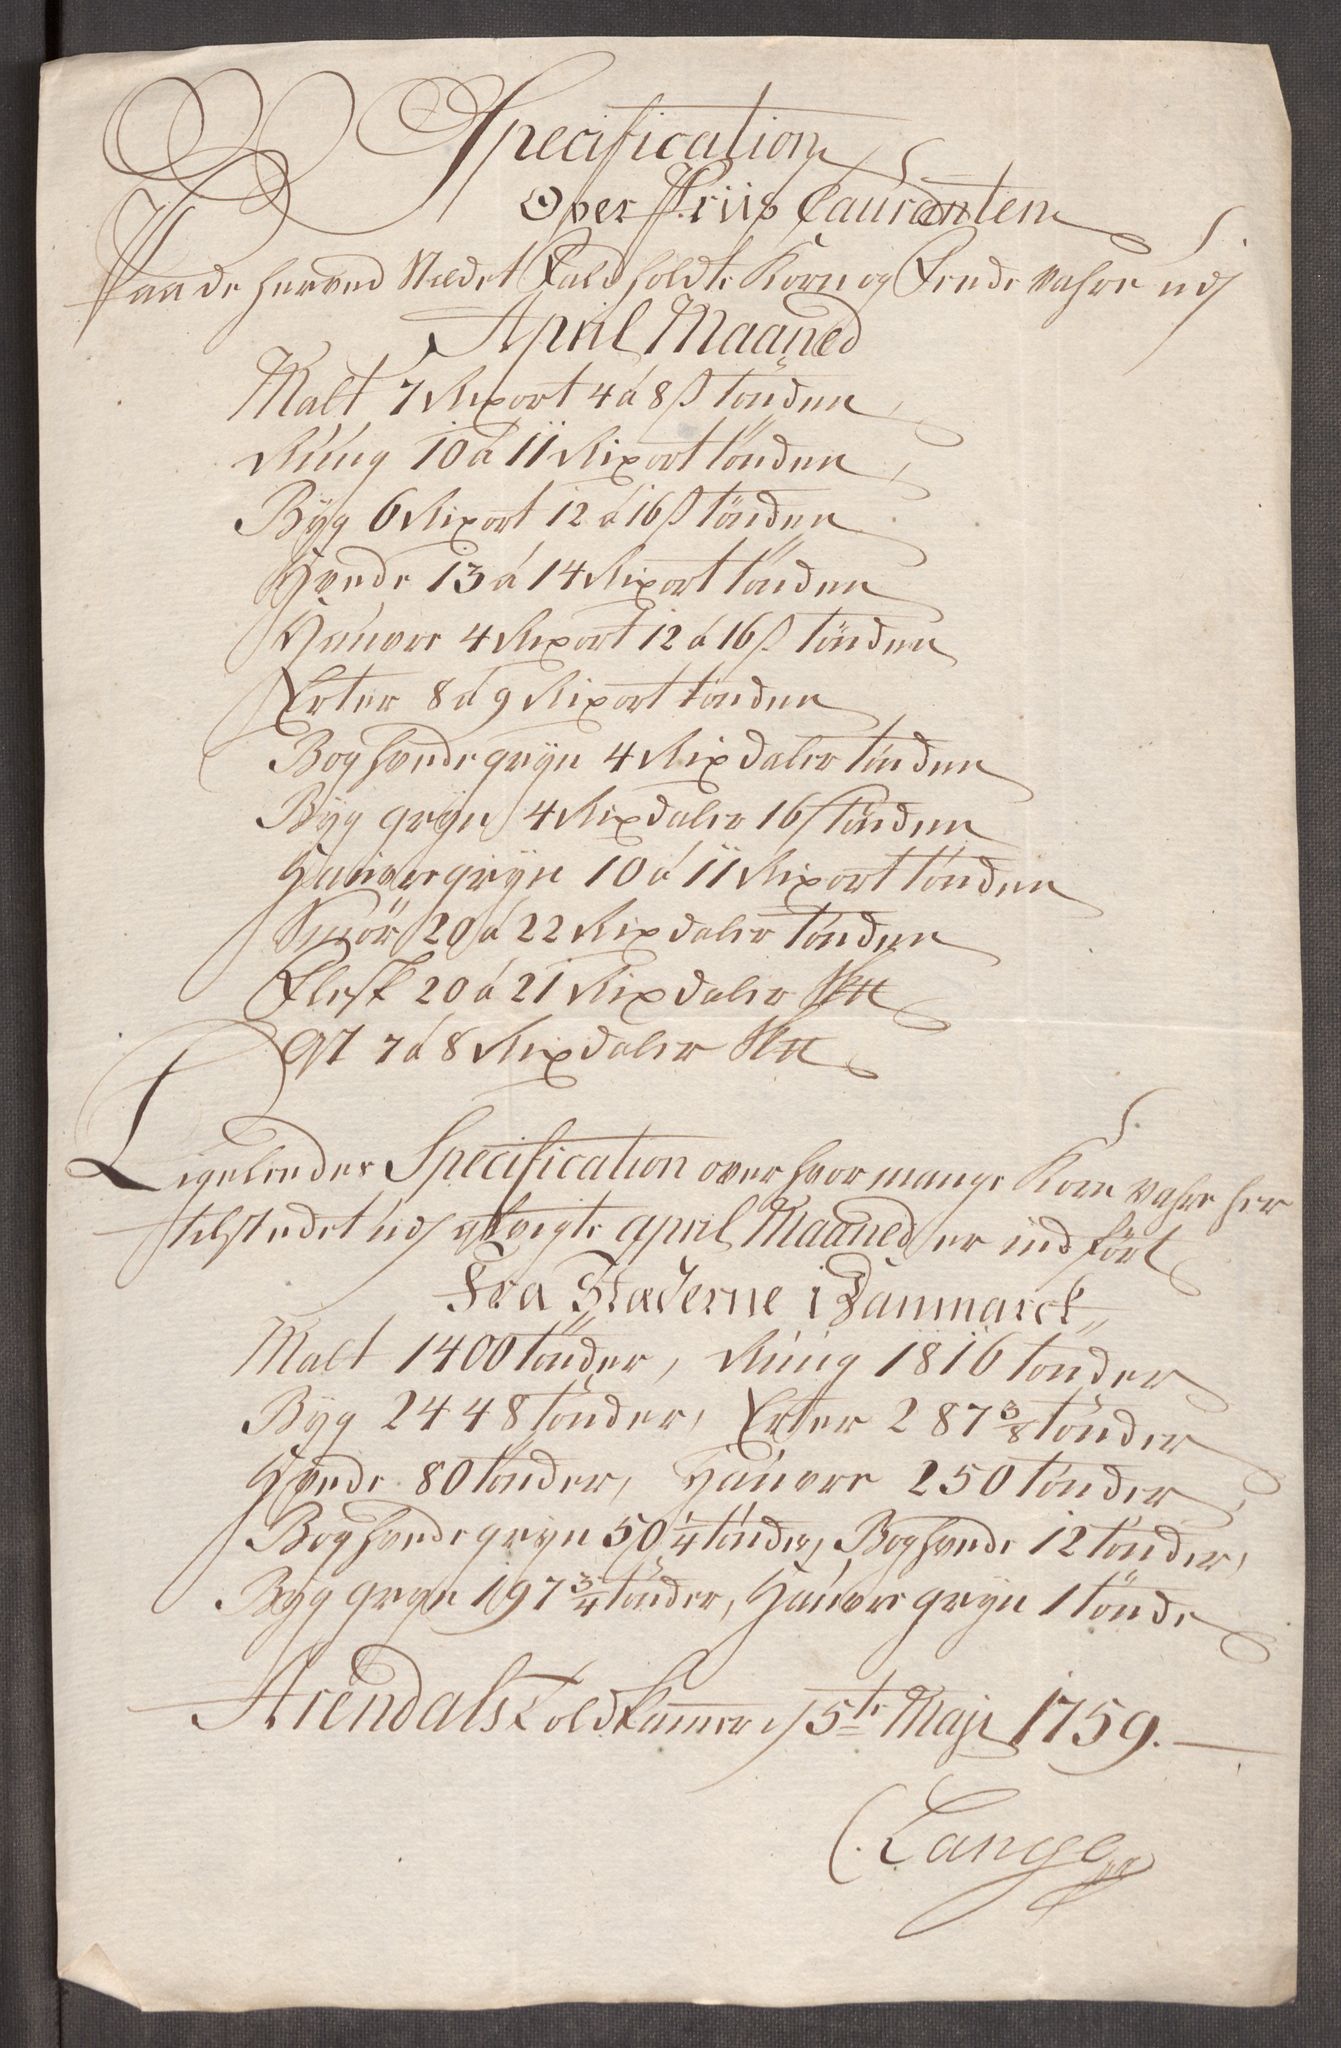 Specification
Over Priis Couranten
Paa de herved Stædet Fald holdte Korn og Fende vahre udj
April Maaned
Malt 7 Rixort 4 á 8 ß tönden
Rúúg 10 á 11 Rixort tönden
Byg 6 Rixort 12 á 16 ß tönden
Hvede 13 á 14 Rixort tönden
Haúvre 4 Rixort 12 á 16 ß tönden
Erter 8 á 9 Rixort tönden
Boghvede gryn 4 Rixdaler tönden
Byg gryn 4 Rixdaler 16 ß tönden
Haúvre gryn 10 á 11 Rixort tönden
Smör 20 á 22 Rixdaler tönden
Flesk 20 á 21 Rixdaler S℔
Ost 7 á 8 Rixdaler S℔
Ligeleedes Specification over hvor mange Korn vahre her
til stædet udj april Maaned er ind fört
Fra Stæderne i Danmarck
Malt 1400 tönder, Rúúg 1816 tönder
Byg 2448 tönder, Erter 287 3/8 tönder
Hvede 80 tönder, Haúvre 250 tönder
Boghvede gryn 50 1/4 tönder, Boghvede 12 tönder,
Byg gryn 197 3/4 tönder, Haúvre gryn 1 tönde
Arendals Toldkammer d 5te Maji 1759.
C. Lange